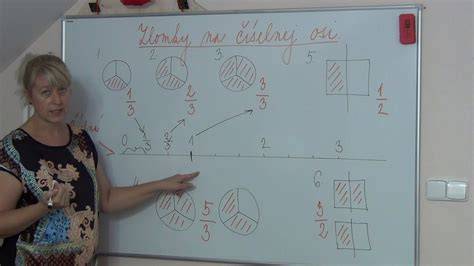 Zlomky na číselnej osi
1 2 3 5
1/3 2/3 3/3 1/2
0 1/3 2/3 1 2 3
4 5/3 6 3/2